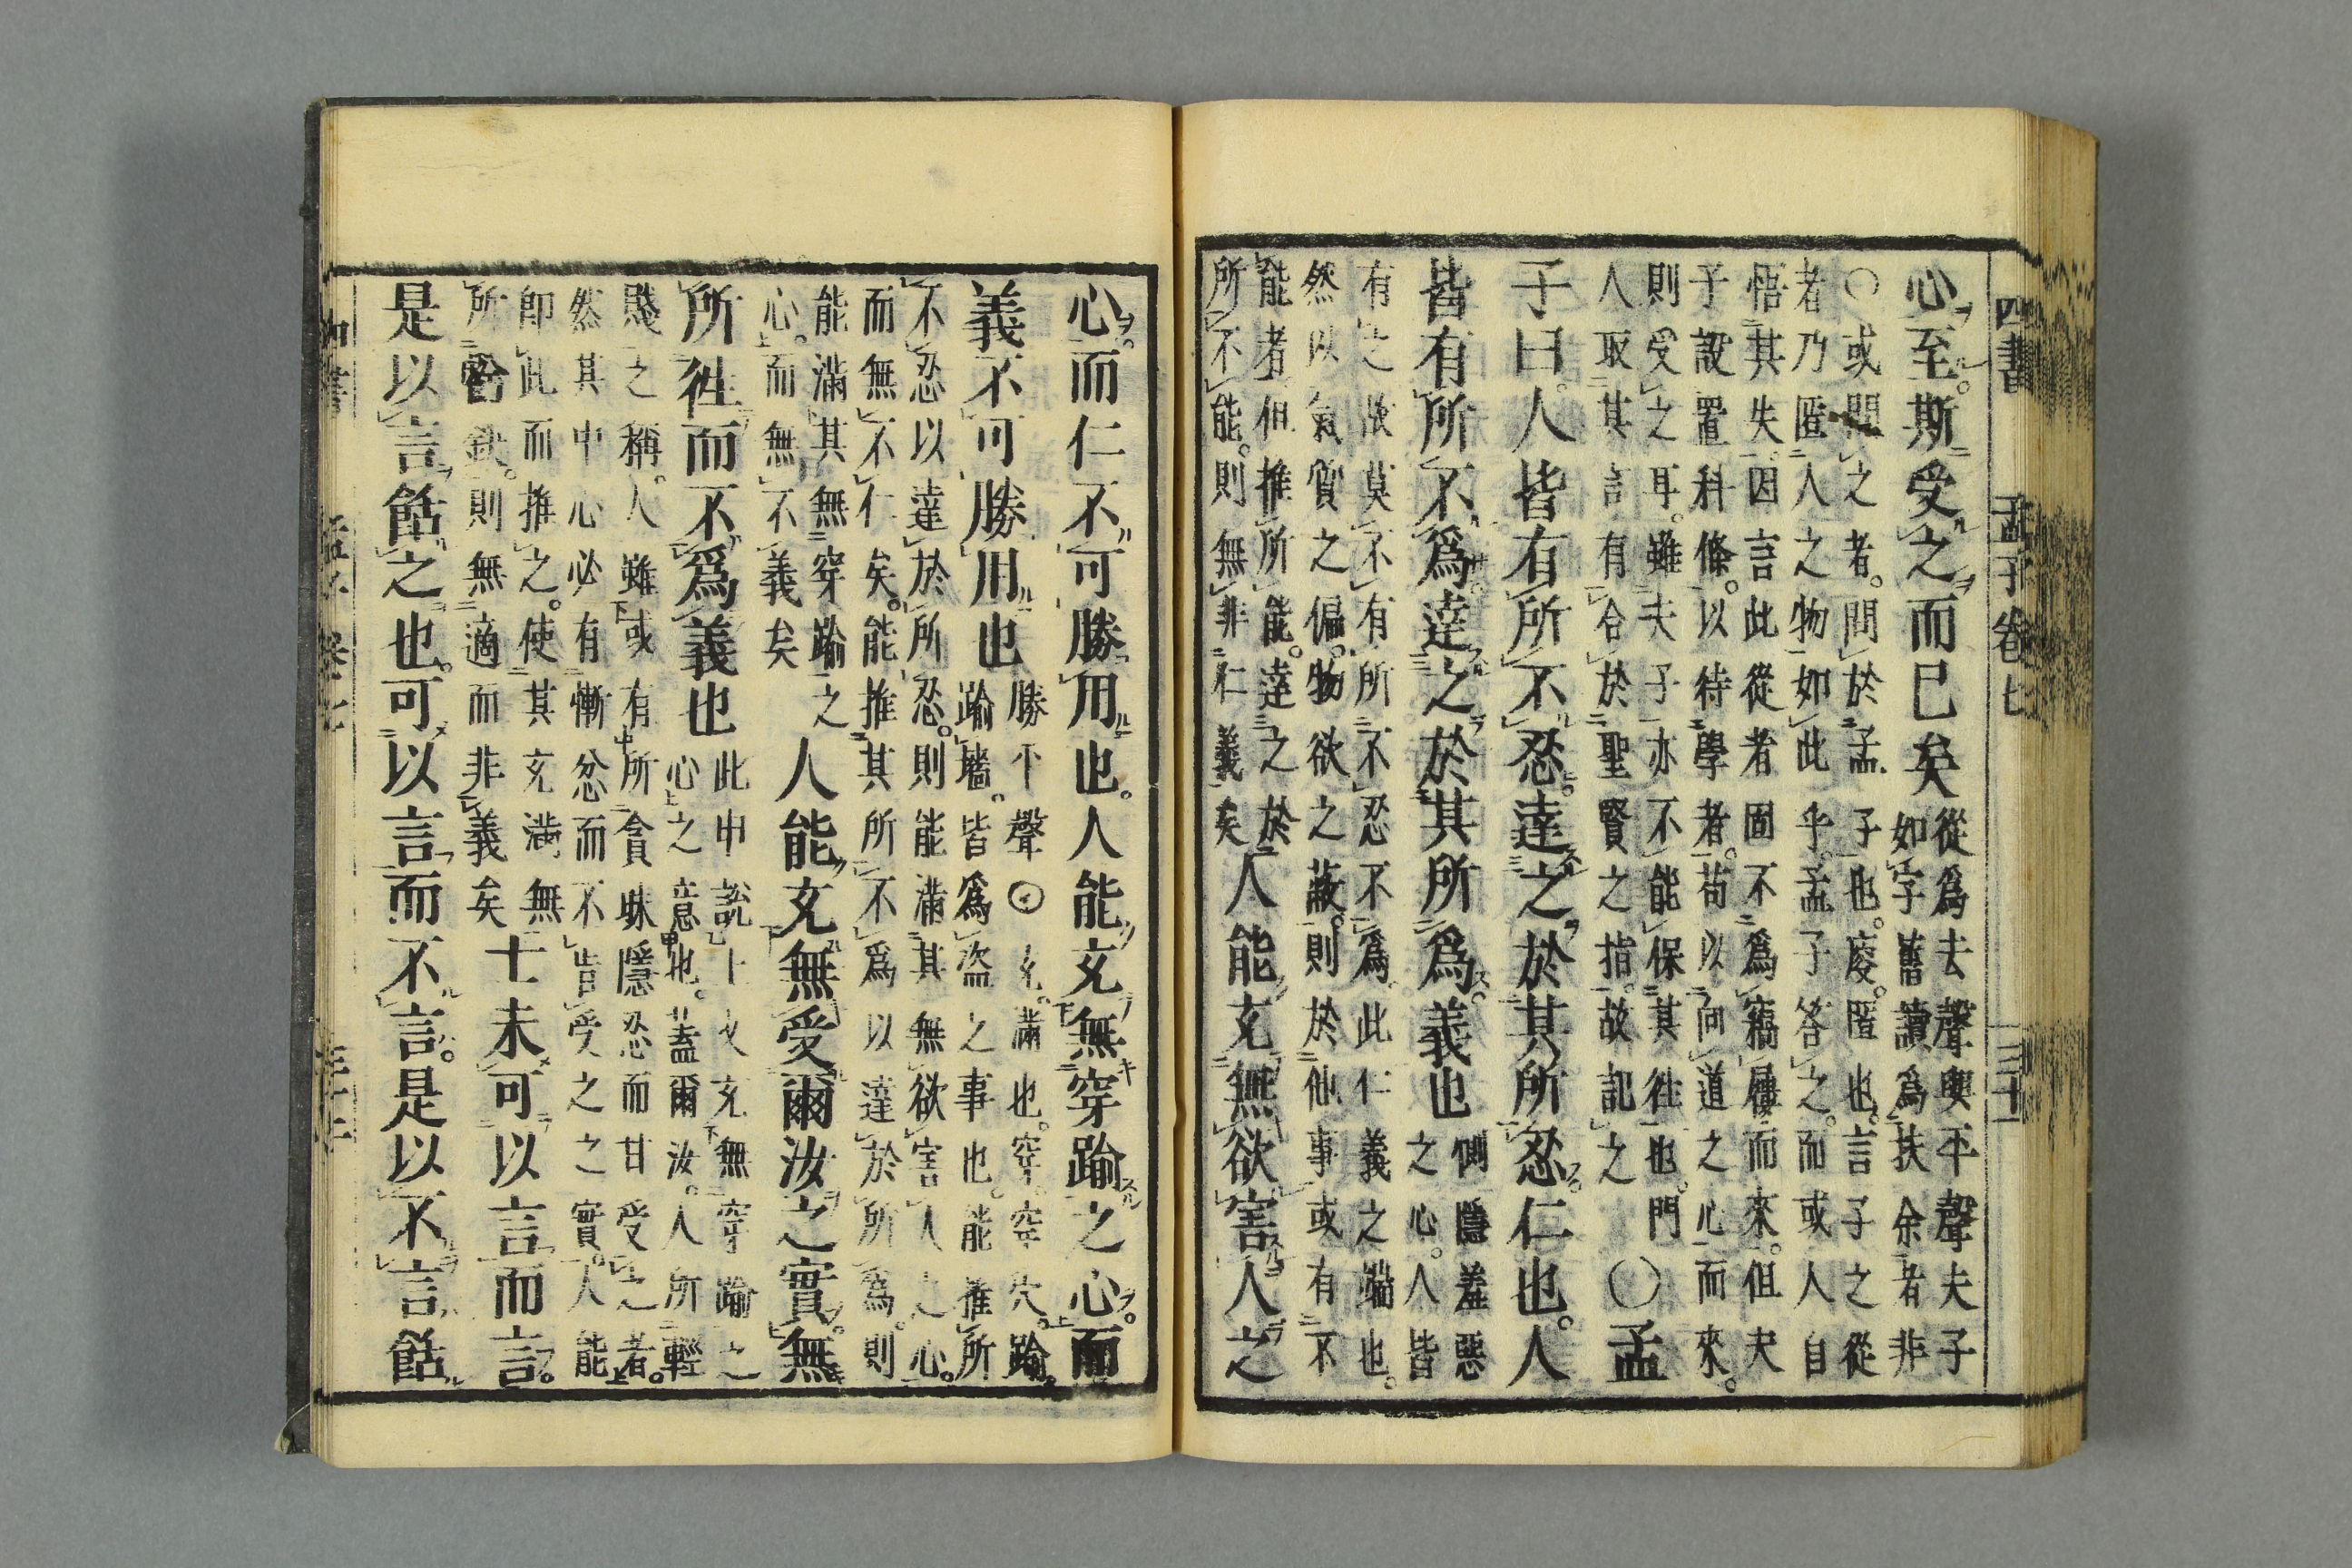 四書　孟子卷七　三十一
心至斯受之而已矣從爲去聲與平聲夫子
如字舊讀爲扶余者非
○或問之者問於孟子也廋匿也言子之從
者乃匿人之物如此乎孟子答之而或人自
悟其失因言此從者固不爲竊屨而來但夫
子設置科條以待學者苟以向道之心而來
則受之耳雖夫子亦不能保其往也門
人取其言有合於聖賢之指故記之　○孟
子曰人皆有所不忍達之於其所忍仁也人
皆有所不爲達之於其所爲義也惻隱羞惡
之心人皆
有之故莫不有所不忍不爲此仁義之端也
然以氣質之偏物欲之蔽則於他事或有不
能者但推所能達之於
所不能則無非仁義矣人能充無欲害人之
心而仁不可勝用也人能充無穿踰之心而
義不可勝用也勝平聲○充滿也穿穿穴踰
踰墻皆爲盜之事也能推所
不忍以達於所忍則能滿其無欲害人之心
而無不仁矣能推其所不爲以達於所爲則
能滿其無穿踰之
心而無不義矣人能充無受爾汝之實無
所往而不爲義也此申說上文充無穿踰之
心之意也蓋爾汝人所輕
賤之稱人雖或有所貪昧隱忍而甘受之者
然其中心必有慚忿而不肯受之之實人能
即此而推之使其充滿無
所虧缺則無適而非義矣士未可以言而言
是以言餂之也可以言而不言是以不言餂